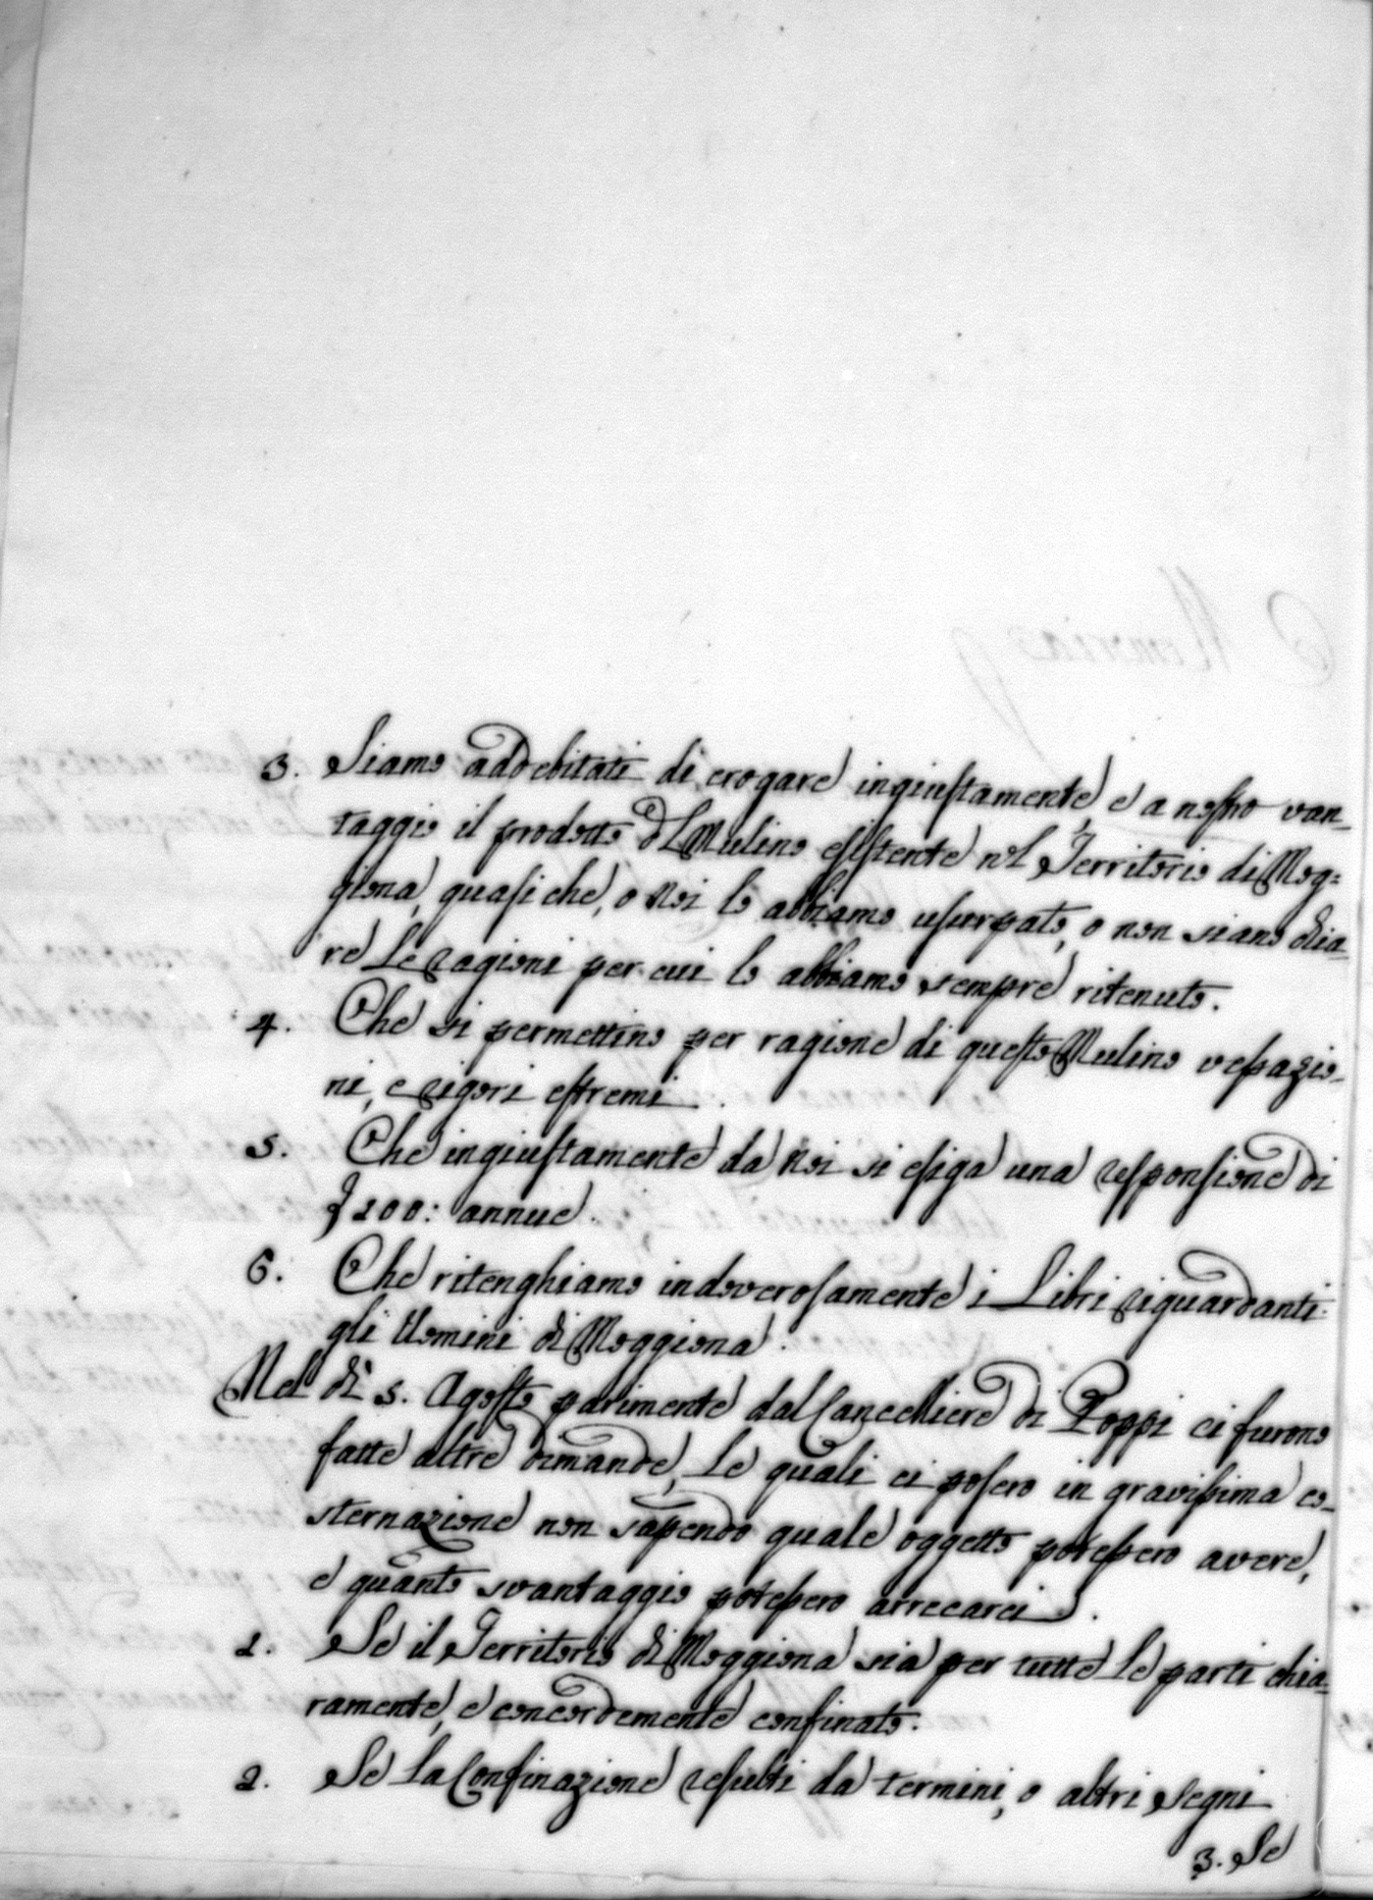 3. Siamo addebitati di erogare ingiustamente, e a nostro van-
taggio il prodotto del Mulino esistente nel Territorio di Mog=
giona, quasi che, o Noi lo abbiamo usurpato, o non siano chia-
re le ragioni per cui lo abbiamo sempre ritenuto.
4. Che si permettino per ragione di questo Mulino vessazio-
ni, e rigori estremi.
5. Che ingiustamente da Noi si esiga una responsione di
£ 100: annue.
6. Che ritenghiamo indoverosamente i Libri riguardanti
gli Uomini di Moggiona.
Nel dì 5. Agosto parimente dal Cancelliere di Poppi ci furono
fatte altre dimande, le quali ci posero in gravissima co-
sternazione non sapendo quale oggetto potessero avere,
e quanto svantaggio potessero arrecarci.
1. Se il Territorio di Moggiona sia per tutte le parti chia=
ramente, e concordemente confinato.
2. Se la Confinazione resulti da termini, o altri segni
3. Se